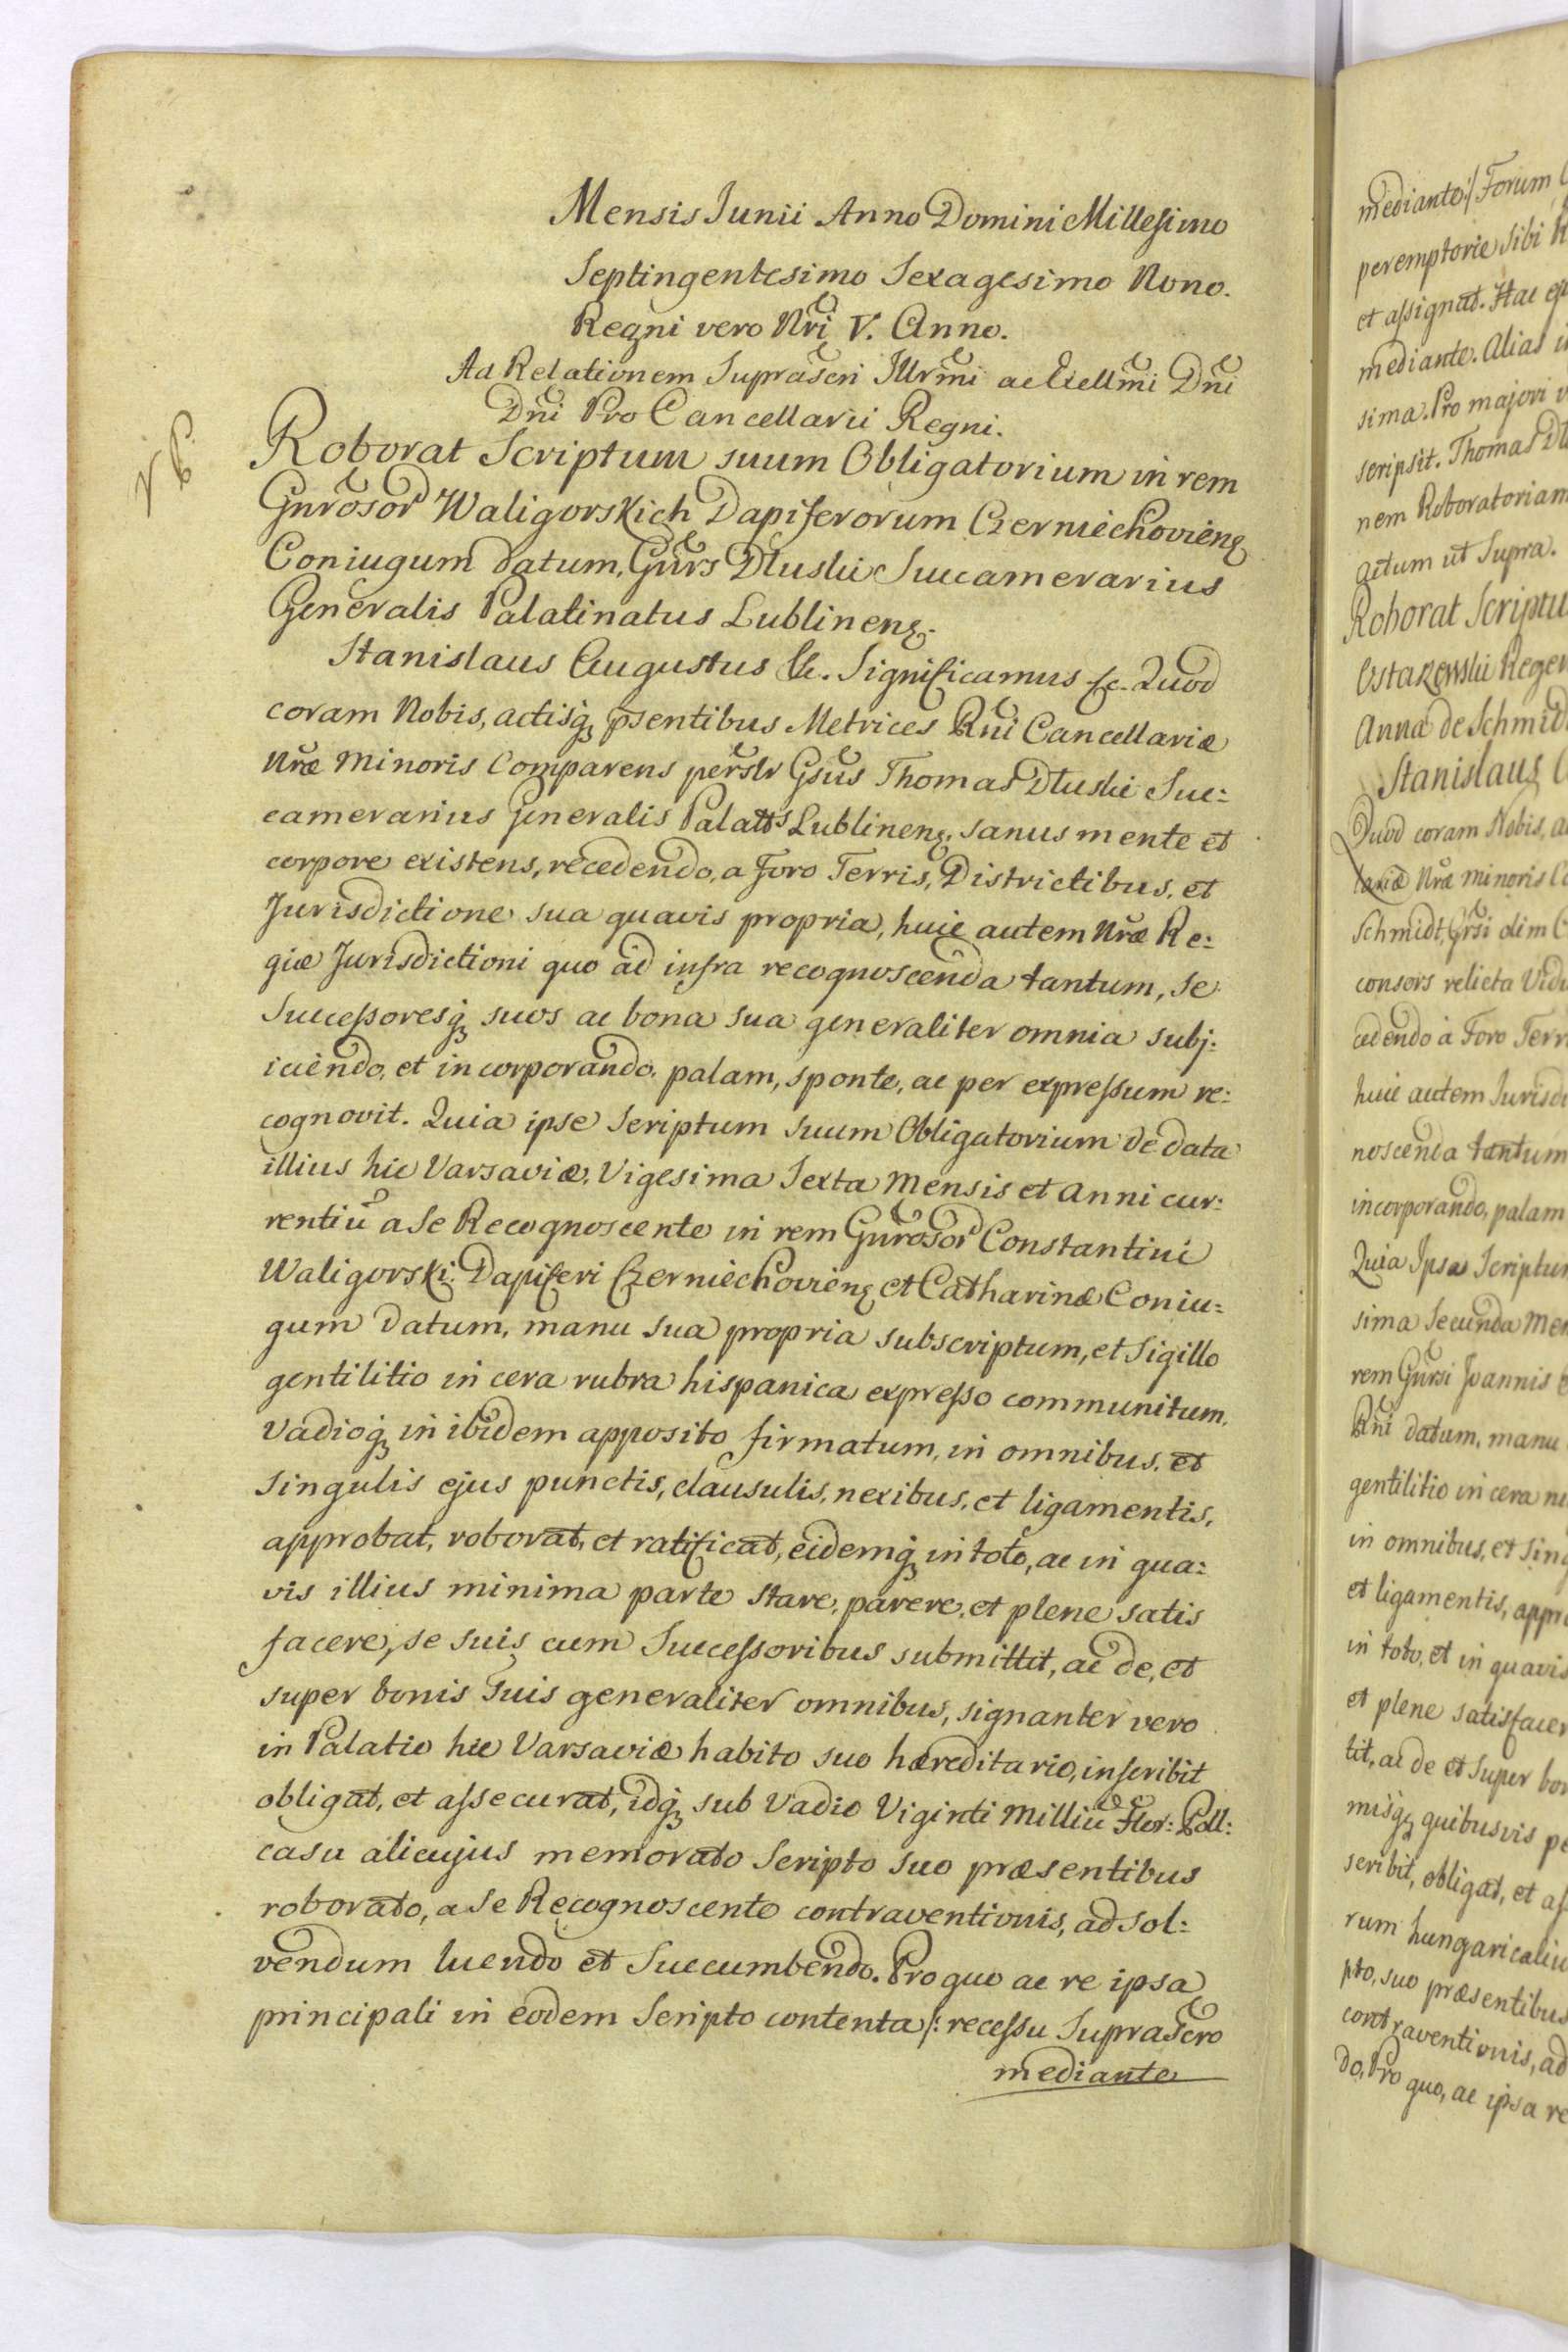 Mensis Junii Anno Domini Millesimo
Septingentesimo Sexagesimo Nono.
Regni vero Nri V. Anno.
Ad Relationem Suprascri Illrmi ac Excellmi Dni
Dni Pro Cancellarii Regni.
Roborat Scriptum suum Obligatorium in rem
Gnrosor Waligorskich Dapiferorum Czerniechoviens
Coniugum datum, Gnrs Dluski Succamerarius
Generalis Palatinatus Lublinens.
Stanislaus Augustus &c. Significamus &c. Quod
coram Nobis, actisq psentibus Metrices Rni Cancellariæ
Nræ Minoris Comparens perslr Gsus Thomas Dluski Suc:
camerarius Generalis Palatts Lublinens, sanus mente et
corpore existens, recedendo, a Foro Terris, Districtibus, et
Jurisdictione sua quavis propria, huic autem Nræ Re:
giæ Jurisdictioni quo ad infra recognoscenda tantum, se
Successoresq suos ac bona sua generaliter omnia subj:
iciendo, et incorporando, palam, sponte, ac per expressum re:
cognovit. Quia ipse Scriptum suum Obligatorium de data
illius hic Varsaviæ, Vigesima Sexta Mensis et Anni cur:
rentiu a Se Recognoscente in rem Gnrosor Constantini
Waligorski Dapiferi Czerniechoviens et Catharinæ Coniu:
gum datum, manu sua propria subscriptum, et Sigillo
gentilitio in cera rubra hispanica expresso communitum,
Vadioq in ibidem apposito firmatum, in omnibus, et
Singulis ejus punctis, clausulis, nexibus, et ligamentis,
approbat, roborat, et ratificat, eidemq in toto, ac in qua:
vis illius minima parte stare, parere, et plene satis
facere, se suis cum Successoribus submittit, ac de, et
super bonis Suis generaliter omnibus, signanter vero
in Palatio hic Varsaviæ habito suo hæreditario, inscribit
obligat, et assecurat, idq sub Vadio Viginti Milliu Flor: Poll:
casu alicujus memorato Scripto suo præsentibus
roborato, a Se Recognoscente contraventionis, ad sol:
vendum luendo et Succumbendo. Pro quo ac re ipsa
principali in eodem Scripto contenta /: recessu Suprascro
mediante
mediante :/ Forum
peremptorie Sibi
et assignat. Hac
mediante. Alias
sima. Pro majori
scripsit. Thomas
nem Roboratoriam
actum ut Supra.
Roborat Scriptu
Ostaszewski Regen
Anna de Schmid
Stanislaus
Quod coram Nobis,
lariæ Nræ minoris
Schmidt, Grsi olim
consors relicta Vidu
cedendo à Foro Terri
huic autem Jurisdi
noscenda tantum
incorporando, palam
Quia Ipsa Scriptum
sima Secunda Men
rem Gnrsi Joannis
Rni datum, manu
gentilitio in cera
in omnibus, et Sing
et ligamentis, appro
in toto, et in quavis
et plene satisfacer
tit, ac de et Super bon
misq quibusvis pe
scribit, obligat, et as
rum hungaricaliu
pto, suo præsentibus
contraventionis, ad
do. Pro quo, ac ipsa re